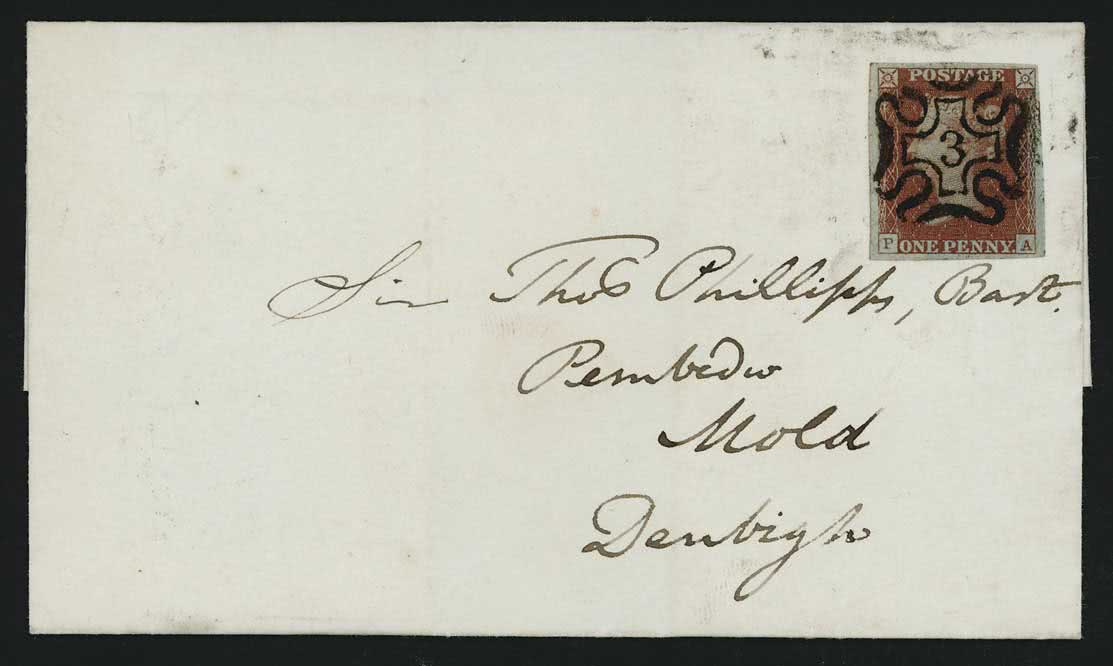 POSTAGE
3
P ONE PENNY A
Sir Thos Phillipps, Bart.
Penbedw
Mold
Denbigh